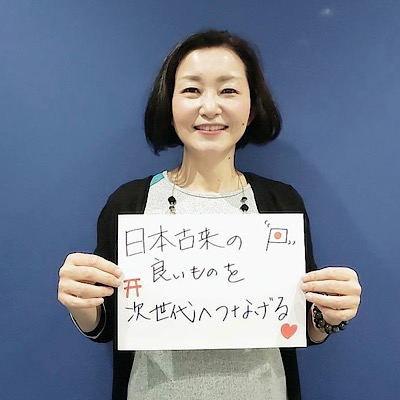 日本古来の
良いものを
次世代へつなげる